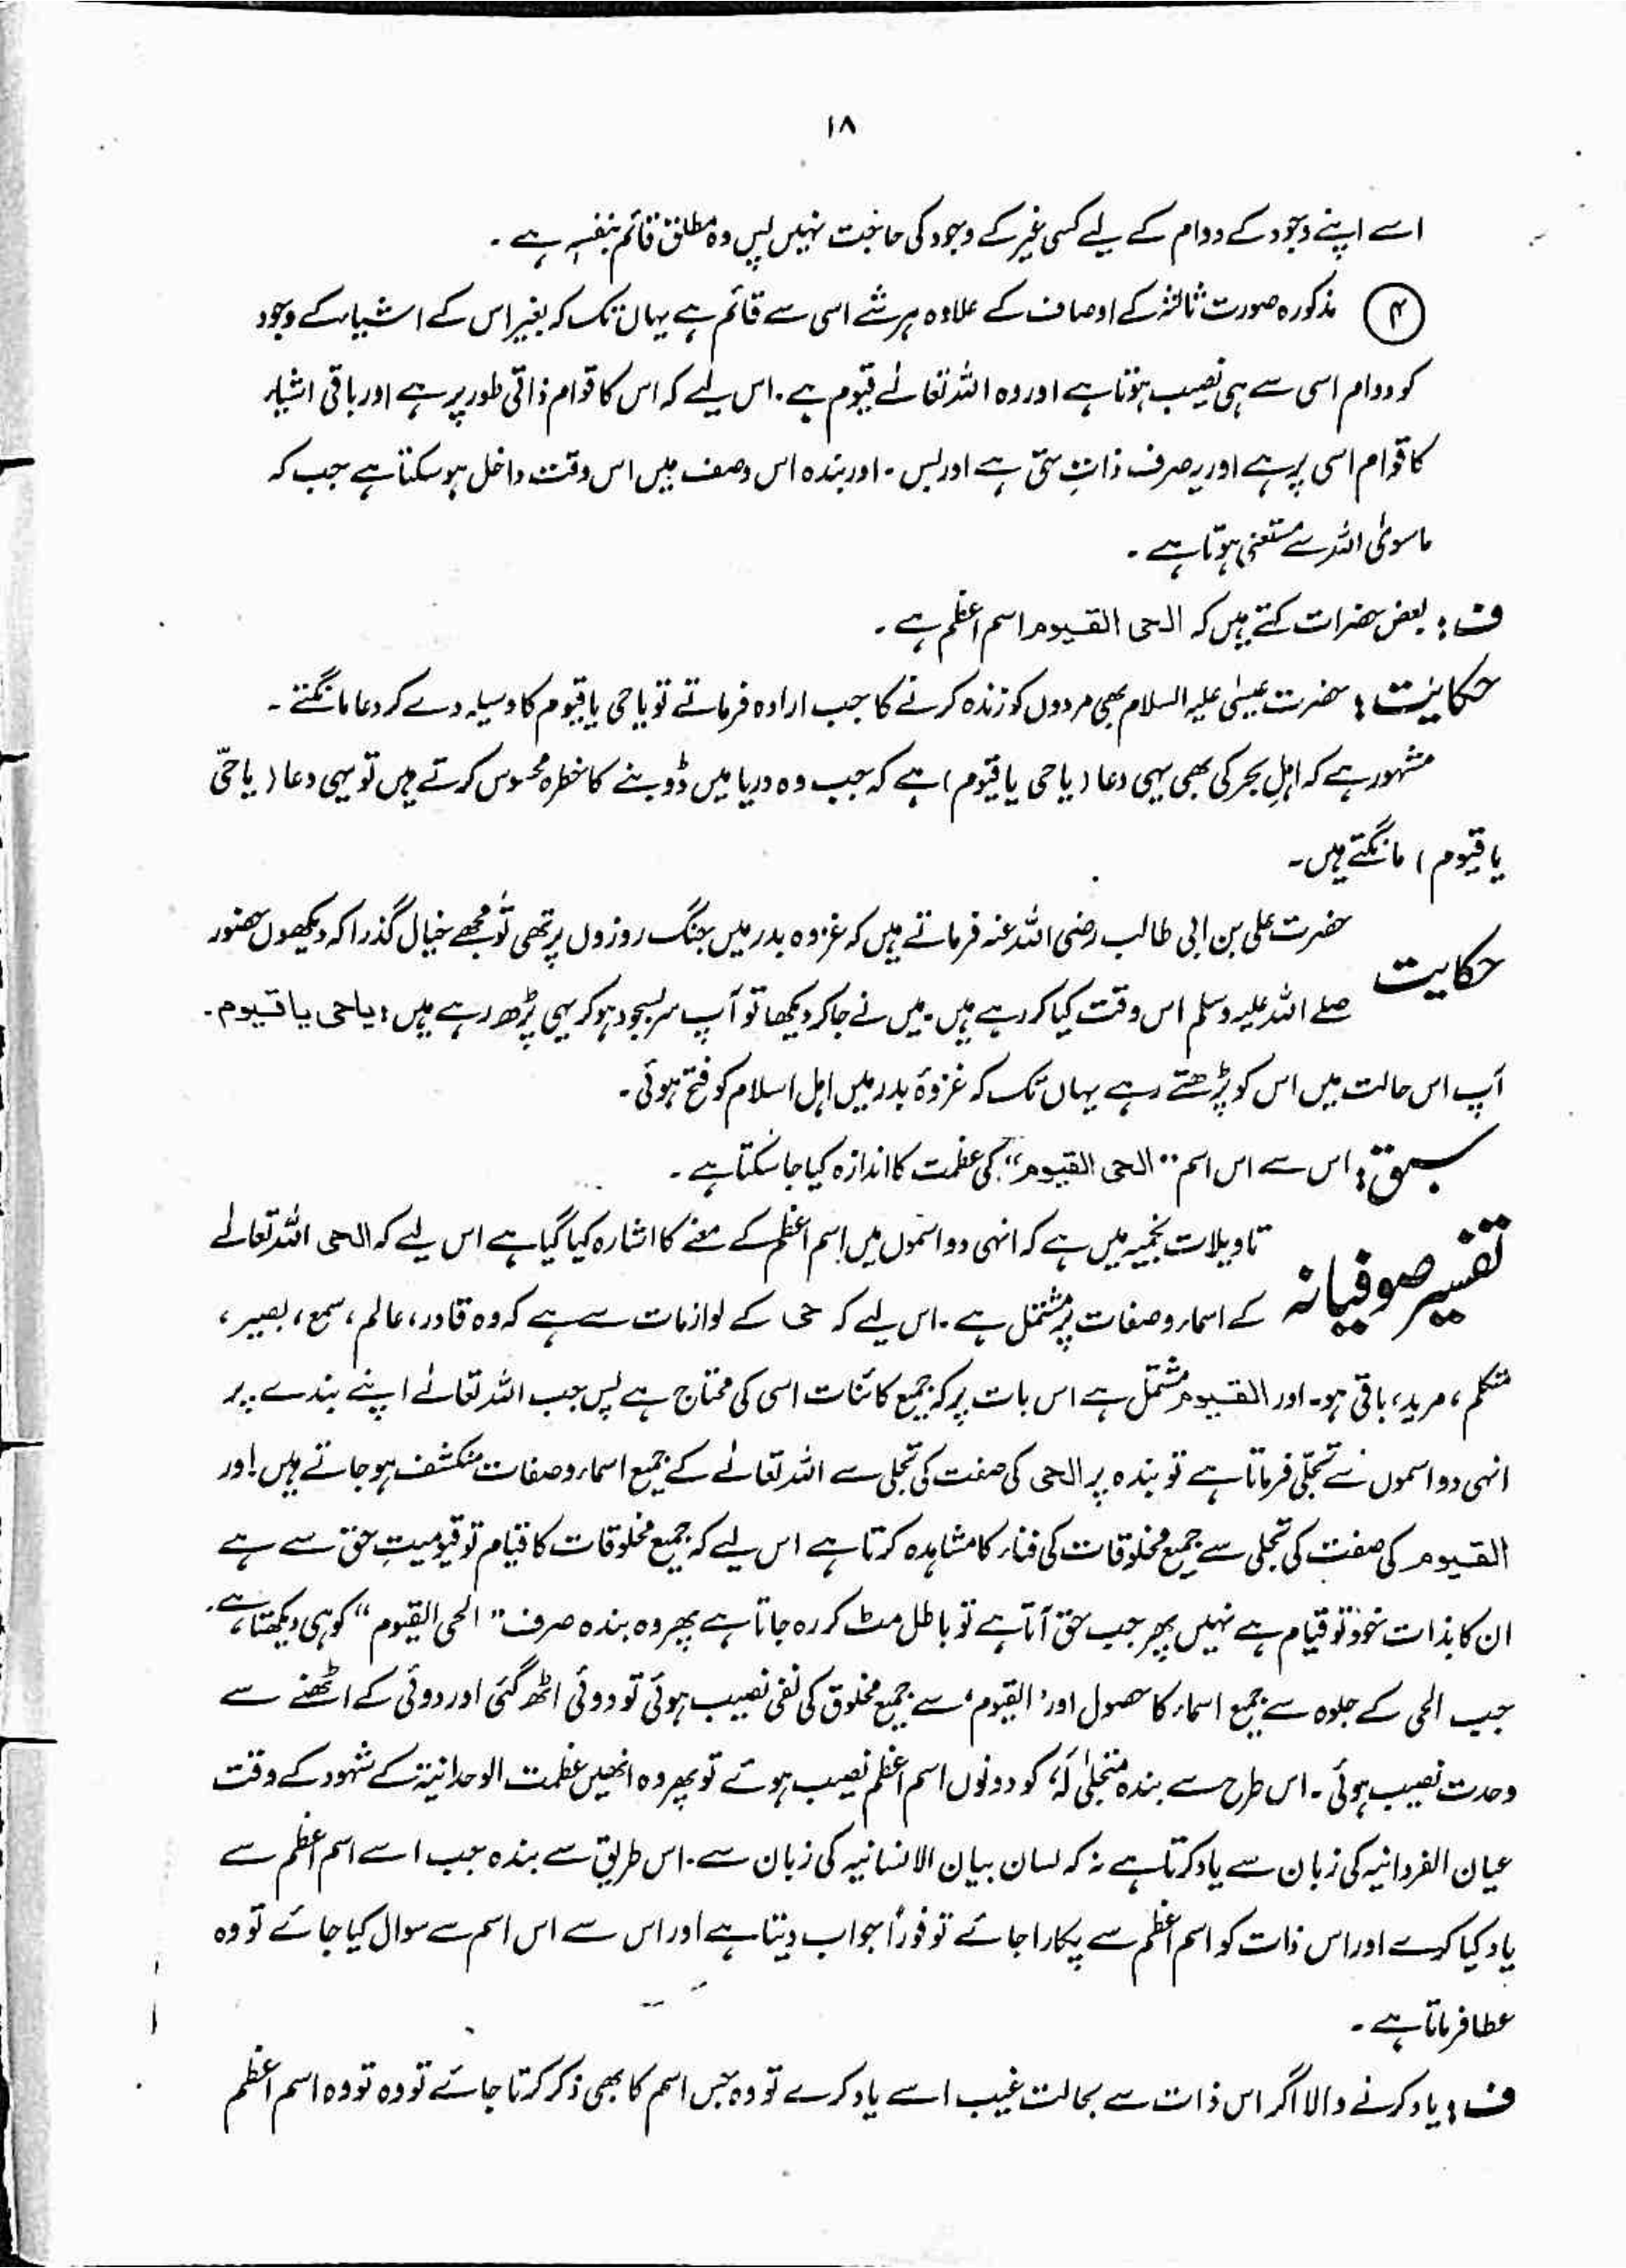 ۱۸
اسے اپنے وجود کے دوام کے لیے کسی غیر کے وجود کی حاجت نہیں پس وہ مطلق قائم بنفسہٖ ہے ۔
۴ مذکورہ صورت ثالثہ کے اوصاف کے علاوہ ہر شے اسی سے قائم ہے یہاں تک کہ بغیر اس کے اشیاء کے وجود
کو دوام اسی سے ہی نصیب ہوتا ہے اور وہ اللہ تعالےٰ قیوم ہے ۔ اس لیے کہ اس کا قوام ذاتی طور پر ہے اور باقی اشیاء
کا قوام اسی پر ہے اور یہ صرف ذاتِ حق ہے اور بس ۔ اور بندہ اس وصف میں اس وقت داخل ہو سکتا ہے جب کہ
ماسوی اللہ سے مستغنی ہوتا ہے ۔
ف : بعض حضرات کہتے ہیں کہ الحی القیوم اسم اعظم ہے ۔
حکایت : حضرت عیسٰی علیہ السلام بھی مردوں کو زندہ کرنے کا جب ارادہ فرماتے تو یا حی یا قیوم کا وسیلہ دے کر دعا مانگتے ۔
مشہور ہے کہ اہلِ بحر کی بھی یہی دعا ( یا حی یا قیوم ) ہے کہ جب وہ دریا میں ڈوبنے کا خطرہ محسوس کرتے ہیں تو یہی دعا ( یا حیّ
یا قیوم ) مانگتے ہیں۔
حکایت حضرت علی بن ابی طالب رضی اللہ عنہ فرماتے ہیں کہ غزوہ بدر میں جنگ روزوں پر تھی تو مجھے خیال گذرا کہ دیکھوں حضور
صلے اللہ علیہ وسلم اس وقت کیا کر رہے ہیں ۔ میں نے جا کر دیکھا تو آپ سر بسجود ہو کر یہی پڑھ رہے ہیں : یا حی یا قیوم ۔
آپ اس حالت میں اس کو پڑھتے رہے یہاں تک کہ غزوۂ بدر میں اہل اسلام کو فتح ہوئی ۔
سبق : اس سے اس اسم " الحی القیوم " کی عظمت کا اندازہ کیا جا سکتا ہے ۔
تفسیر صوفیانہ تاویلات نجمیہ میں ہے کہ انہی دو اسموں میں اسم اعظم کے معنے کا اشارہ کیا گیا ہے اس لیے کہ الحی اللہ تعالےٰ
کے اسماء و صفات پر مشتمل ہے ۔ اس لیے کہ حی کے لوازمات سے ہے کہ وہ قادر ، عالم ، سمع ، بصیر ،
متکلم ، مرید ، باقی ہو ۔ اور القیوم مشتمل ہے اس بات پر کہ جمیع کائنات اسی کی محتاج ہے پس جب اللہ تعالےٰ اپنے بندے پر
انہی دو اسموں سے تجلّی فرماتا ہے تو بندہ پر الحی کی صفت کی تجلی سے اللہ تعالےٰ کے جمیع اسماء و صفات منکشف ہو جاتے ہیں اور
القیوم کی صفت کی تجلی سے جمیع مخلوقات کی فناء کا مشاہدہ کرتا ہے اس لیے کہ جمیع مخلوقات کا قیام تو قیومیتِ حق سے ہے
ان کا بذات خود تو قیام ہے نہیں پھر جب حق آتا ہے تو باطل مٹ کر رہ جاتا ہے پھر وہ بندہ صرف " الحی القیوم " کو ہی دیکھتا ہے ۔
جب الحی کے جلوہ سے جمیع اسماء کا حصول اور ' القیوم ' سے جمیع مخلوق کی نفی نصیب ہوئی تو دوئی اٹھ گئی اور دوئی کے اٹھنے سے
وحدت نصیب ہوئی ۔ اس طرح سے بندہ متجلیٰ لہٗ کو دونوں اسم اعظم نصیب ہوئے تو پھر وہ انھیں عظمت الوحدانیۃ کے شہود کے وقت
عیان الفردانیہ کی زبان سے یاد کرتا ہے نہ کہ لسان بیان الانسانیہ کی زبان سے ۔ اس طریق سے بندہ جب اسے اسم اعظم سے
یاد کیا کرے اور اس ذات کو اسم اعظم سے پکارا جائے تو فوراً جواب دیتا ہے اور اس سے اس اسم سے سوال کیا جائے تو وہ
عطا فرماتا ہے ۔
ف : یاد کرنے والا اگر اس ذات سے بحالت غیب اسے یاد کرے تو وہ جس اسم کا بھی ذکر کرتا جائے تو وہ تو وہ اسم اعظم